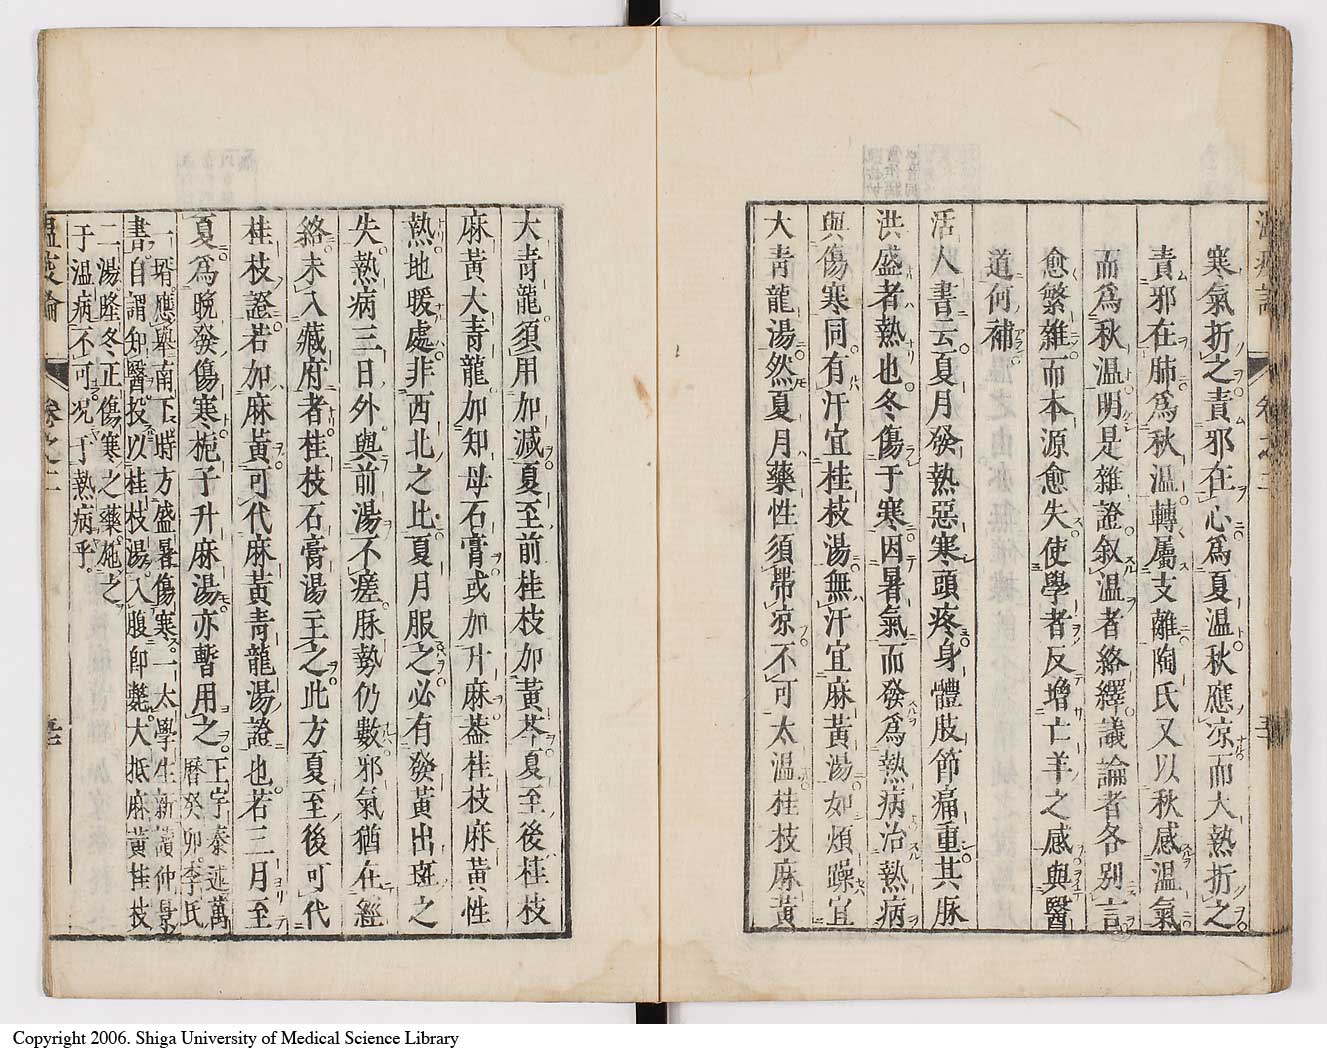 寒氣折之責邪在心爲夏溫秋應凉而大熱折之
責邪在肺爲秋溫轉屬支離陶氏又以秋感溫氣
而爲秋溫明是雜證叙溫者絡繹議論者各別言
愈繁雜而本源愈失使學者反增亡羊之感與醫
道何補
活人書云夏月發熱惡寒頭疼身體肢節痛重其脉
洪盛者熱也冬傷于寒因暑氣而發爲熱病治熱病
與傷寒同有汗宜桂枝湯無汗宜麻黃湯如煩躁宜
大青龍湯然夏月藥性須帶凉不可太溫桂枝麻黃
大青龍須用加減夏至前桂枝加黃芩夏至後桂枝
麻黃大青龍加知母石膏或加升麻蓋桂枝麻黃性
熱地暖處非西北之比夏月服之必有發黃出斑之
失熱病三日外與前湯不瘥脉勢仍數邪氣猶在經
絡未入藏府者桂枝石膏湯主之此方夏至後可代
桂枝證若加麻黃可代麻黃青龍湯證也若三月至
夏爲晚發傷寒梔子升麻湯亦暫用之王宇泰述萬
曆癸卯李氏
一壻應舉南下時方盛暑傷寒一太學生新讀仲景
書自謂知醫投以桂枝湯入腹即斃大抵麻黃桂枝
二湯隆冬正傷寒之藥施之
于溫病不可况于熱病乎
溫疫論
卷之二
Copyright 2006. Shiga University of Medical Science Library